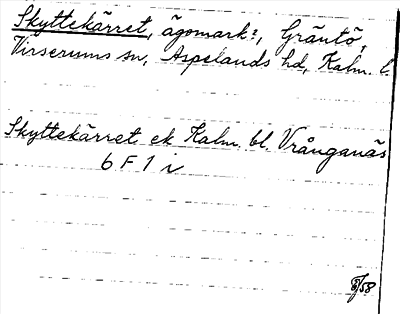 Skyttekärret, ägomark?, Gräntö,
Virserums sn, Aspelands hd, Kalm. l.
Skyttekärret ek Kalm. bl. Vrånganäs
6 F 1 i
8/58